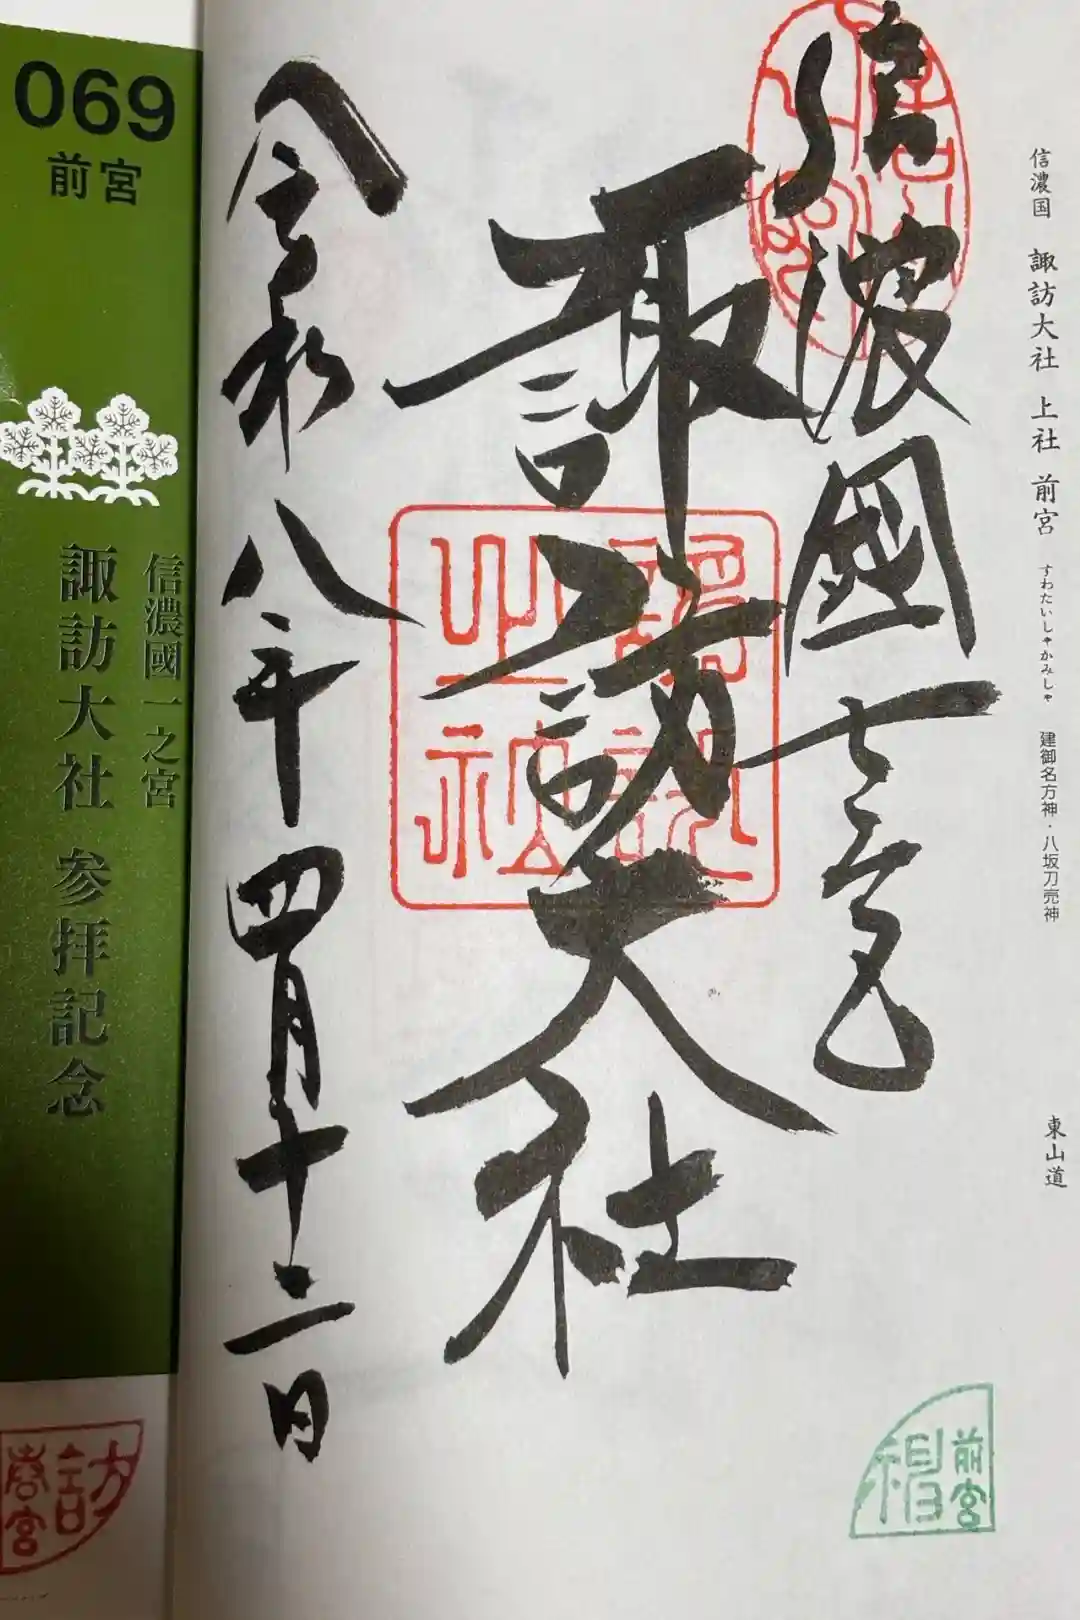 信濃国 諏訪大社 上社 前宮 すわたいしゃかみしゃ 建御名方神・八坂刀売神 東山道
信濃國一之宮
諏訪大社
令和八年四月十二日
前宮
069
前宮
信濃國一之宮
諏訪大社 参拝記念
訪
春宮